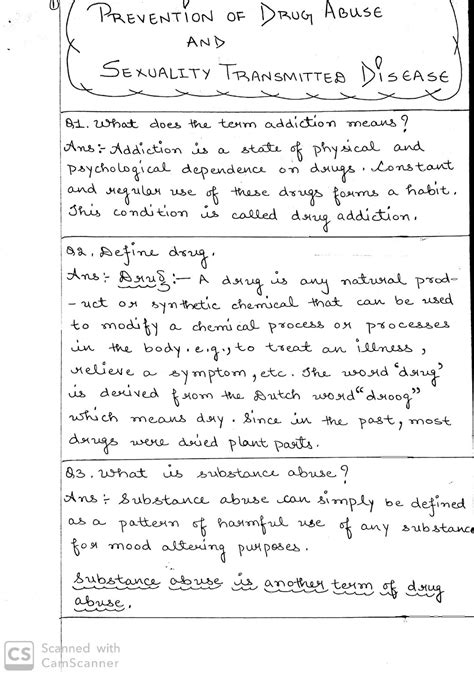 1
PREVENTION OF DRUG ABUSE
AND
SEXUALITY TRANSMITTED DISEASE
Q1. What does the term addiction means?
Ans:- Addiction is a state of physical and
psychological dependence on drugs. Constant
and regular use of these drugs forms a habit.
This condition is called drug addiction.
Q2. Define drug.
Ans:- Drug:- A drug is any natural prod-
-uct or synthetic chemical that can be used
to modify a chemical process or processes
in the body. e.g., to treat an illness,
relieve a symptom, etc. The word 'drug'
is derived from the Dutch word "droog"
which means dry. Since in the past, most
drugs were dried plant parts.
Q3. What is substance abuse?
Ans:- Substance abuse can simply be defined
as a pattern of harmful use of any substance
for mood altering purposes.
Substance abuse is another term of drug
abuse.
CS Scanned with
CamScanner